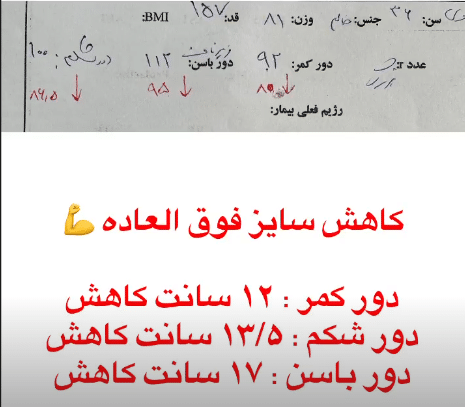 سن: ۳۶ جنس: خانم وزن: ۸۱ قد: ۱۵۷ BMI:
عدد r: دور کمر: ۹۲ دور باسن: ۱۱۲ دور شکم: ۱۰۰
۹۵ ۸۶,۵
رژیم فعلی بیمار:
کاهش سایز فوق العاده 💪
دور کمر : ۱۲ سانت کاهش
دور شکم : ۱۳/۵ سانت کاهش
دور باسن : ۱۷ سانت کاهش